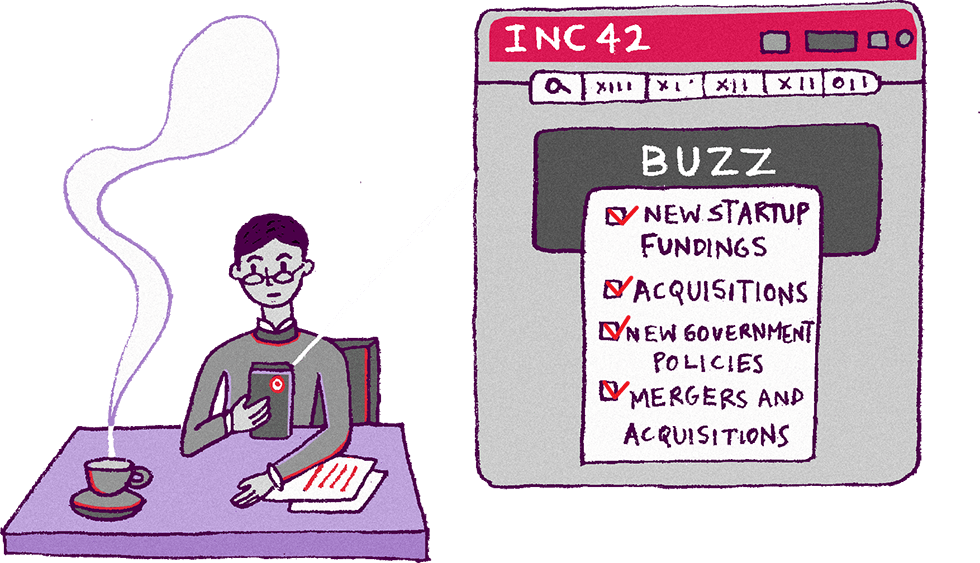 INC 42
BUZZ
NEW STARTUP
FUNDINGS
ACQUISITIONS
NEW GOVERNMENT
POLICIES
MERGERS AND
ACQUISITIONS